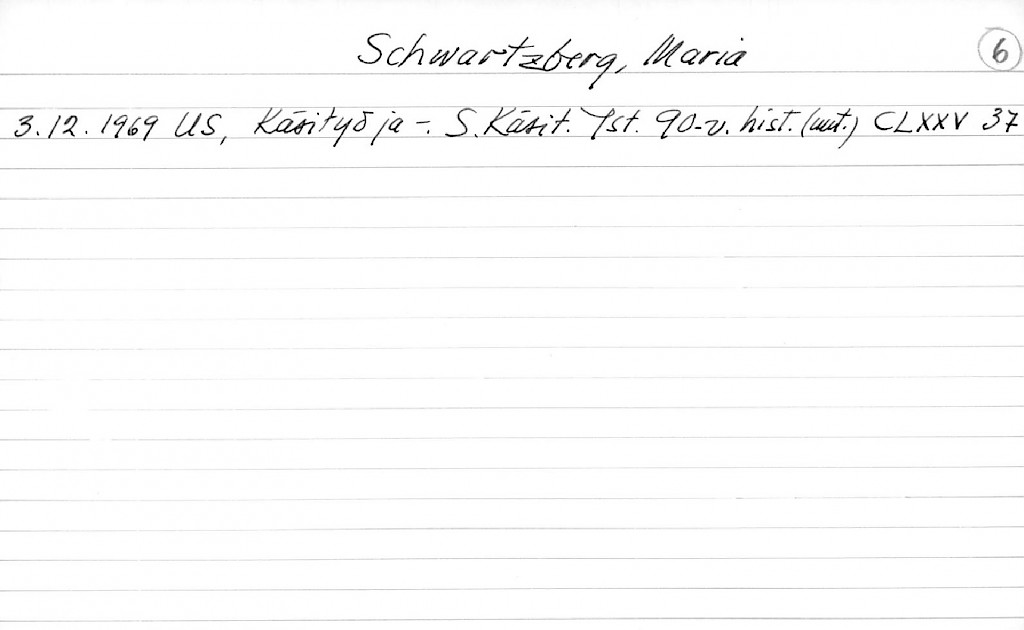 Schwartzberg, Maria 6
3.12.1969 US, Käsityö ja -. S. Käsit. Yst. 90-v. hist. (uut.) CLXXV 37